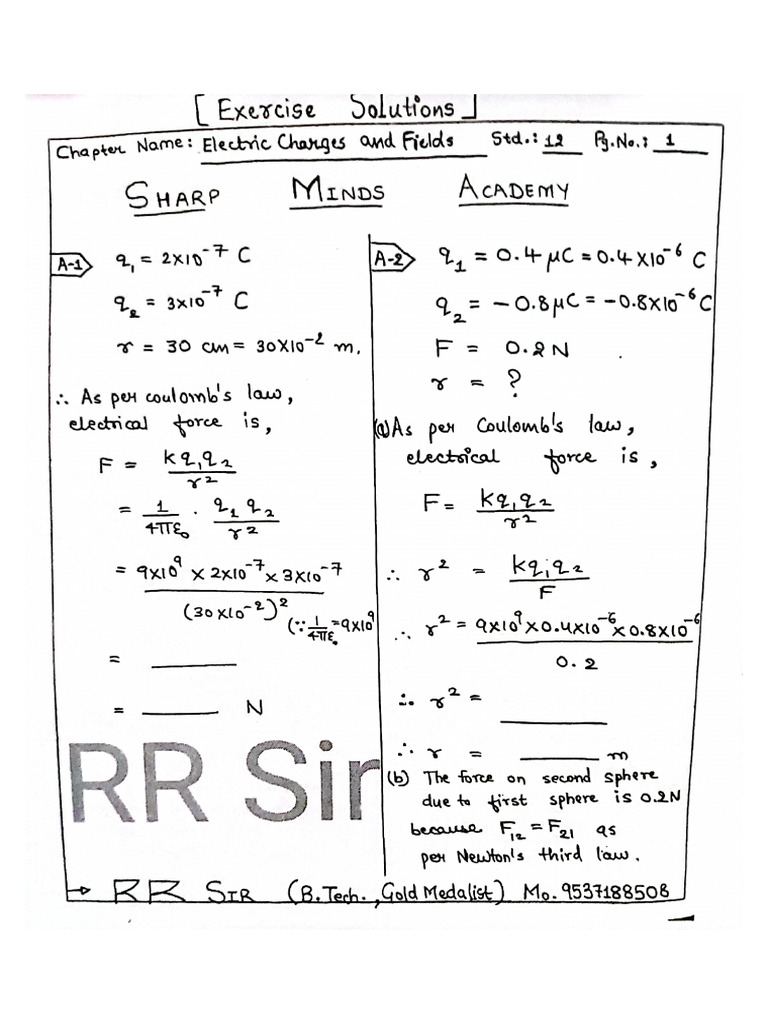 [ Exercise Solutions ]
Chapter Name: Electric Charges and Fields Std.: 12 Pg.No.: 1
SHARP MINDS ACADEMY
A-1 q₁ = 2×10⁻⁷ C
q₂ = 3×10⁻⁷ C
r = 30 cm = 30×10⁻² m.
∴ As per coulomb's law,
electrical force is,
F = kq₁q₂/r²
= 1/4πε₀ · q₁ q₂/r²
= 9×10⁹ × 2×10⁻⁷ × 3×10⁻⁷/(30×10⁻²)²
(∵ 1/4πε₀ = 9×10⁹
= ______
= ______ N
A-2 q₁ = 0.4 μC = 0.4×10⁻⁶ C
q₂ = −0.8μC = −0.8×10⁻⁶ C
F = 0.2 N
r = ?
(a) As per Coulomb's law,
electrical force is,
F = kq₁q₂/r²
∴ r² = kq₁q₂/F
∴ r² = 9×10⁹×0.4×10⁻⁶×0.8×10⁻⁶/0.2
∴ r² = ______
∴ r = ______ m
(b) The force on second sphere
due to first sphere is 0.2N
because F₁₂ = F₂₁ as
per Newton's third law.
RR Sir
→ RR SIR (B.Tech., Gold Medalist) Mo. 9537188508